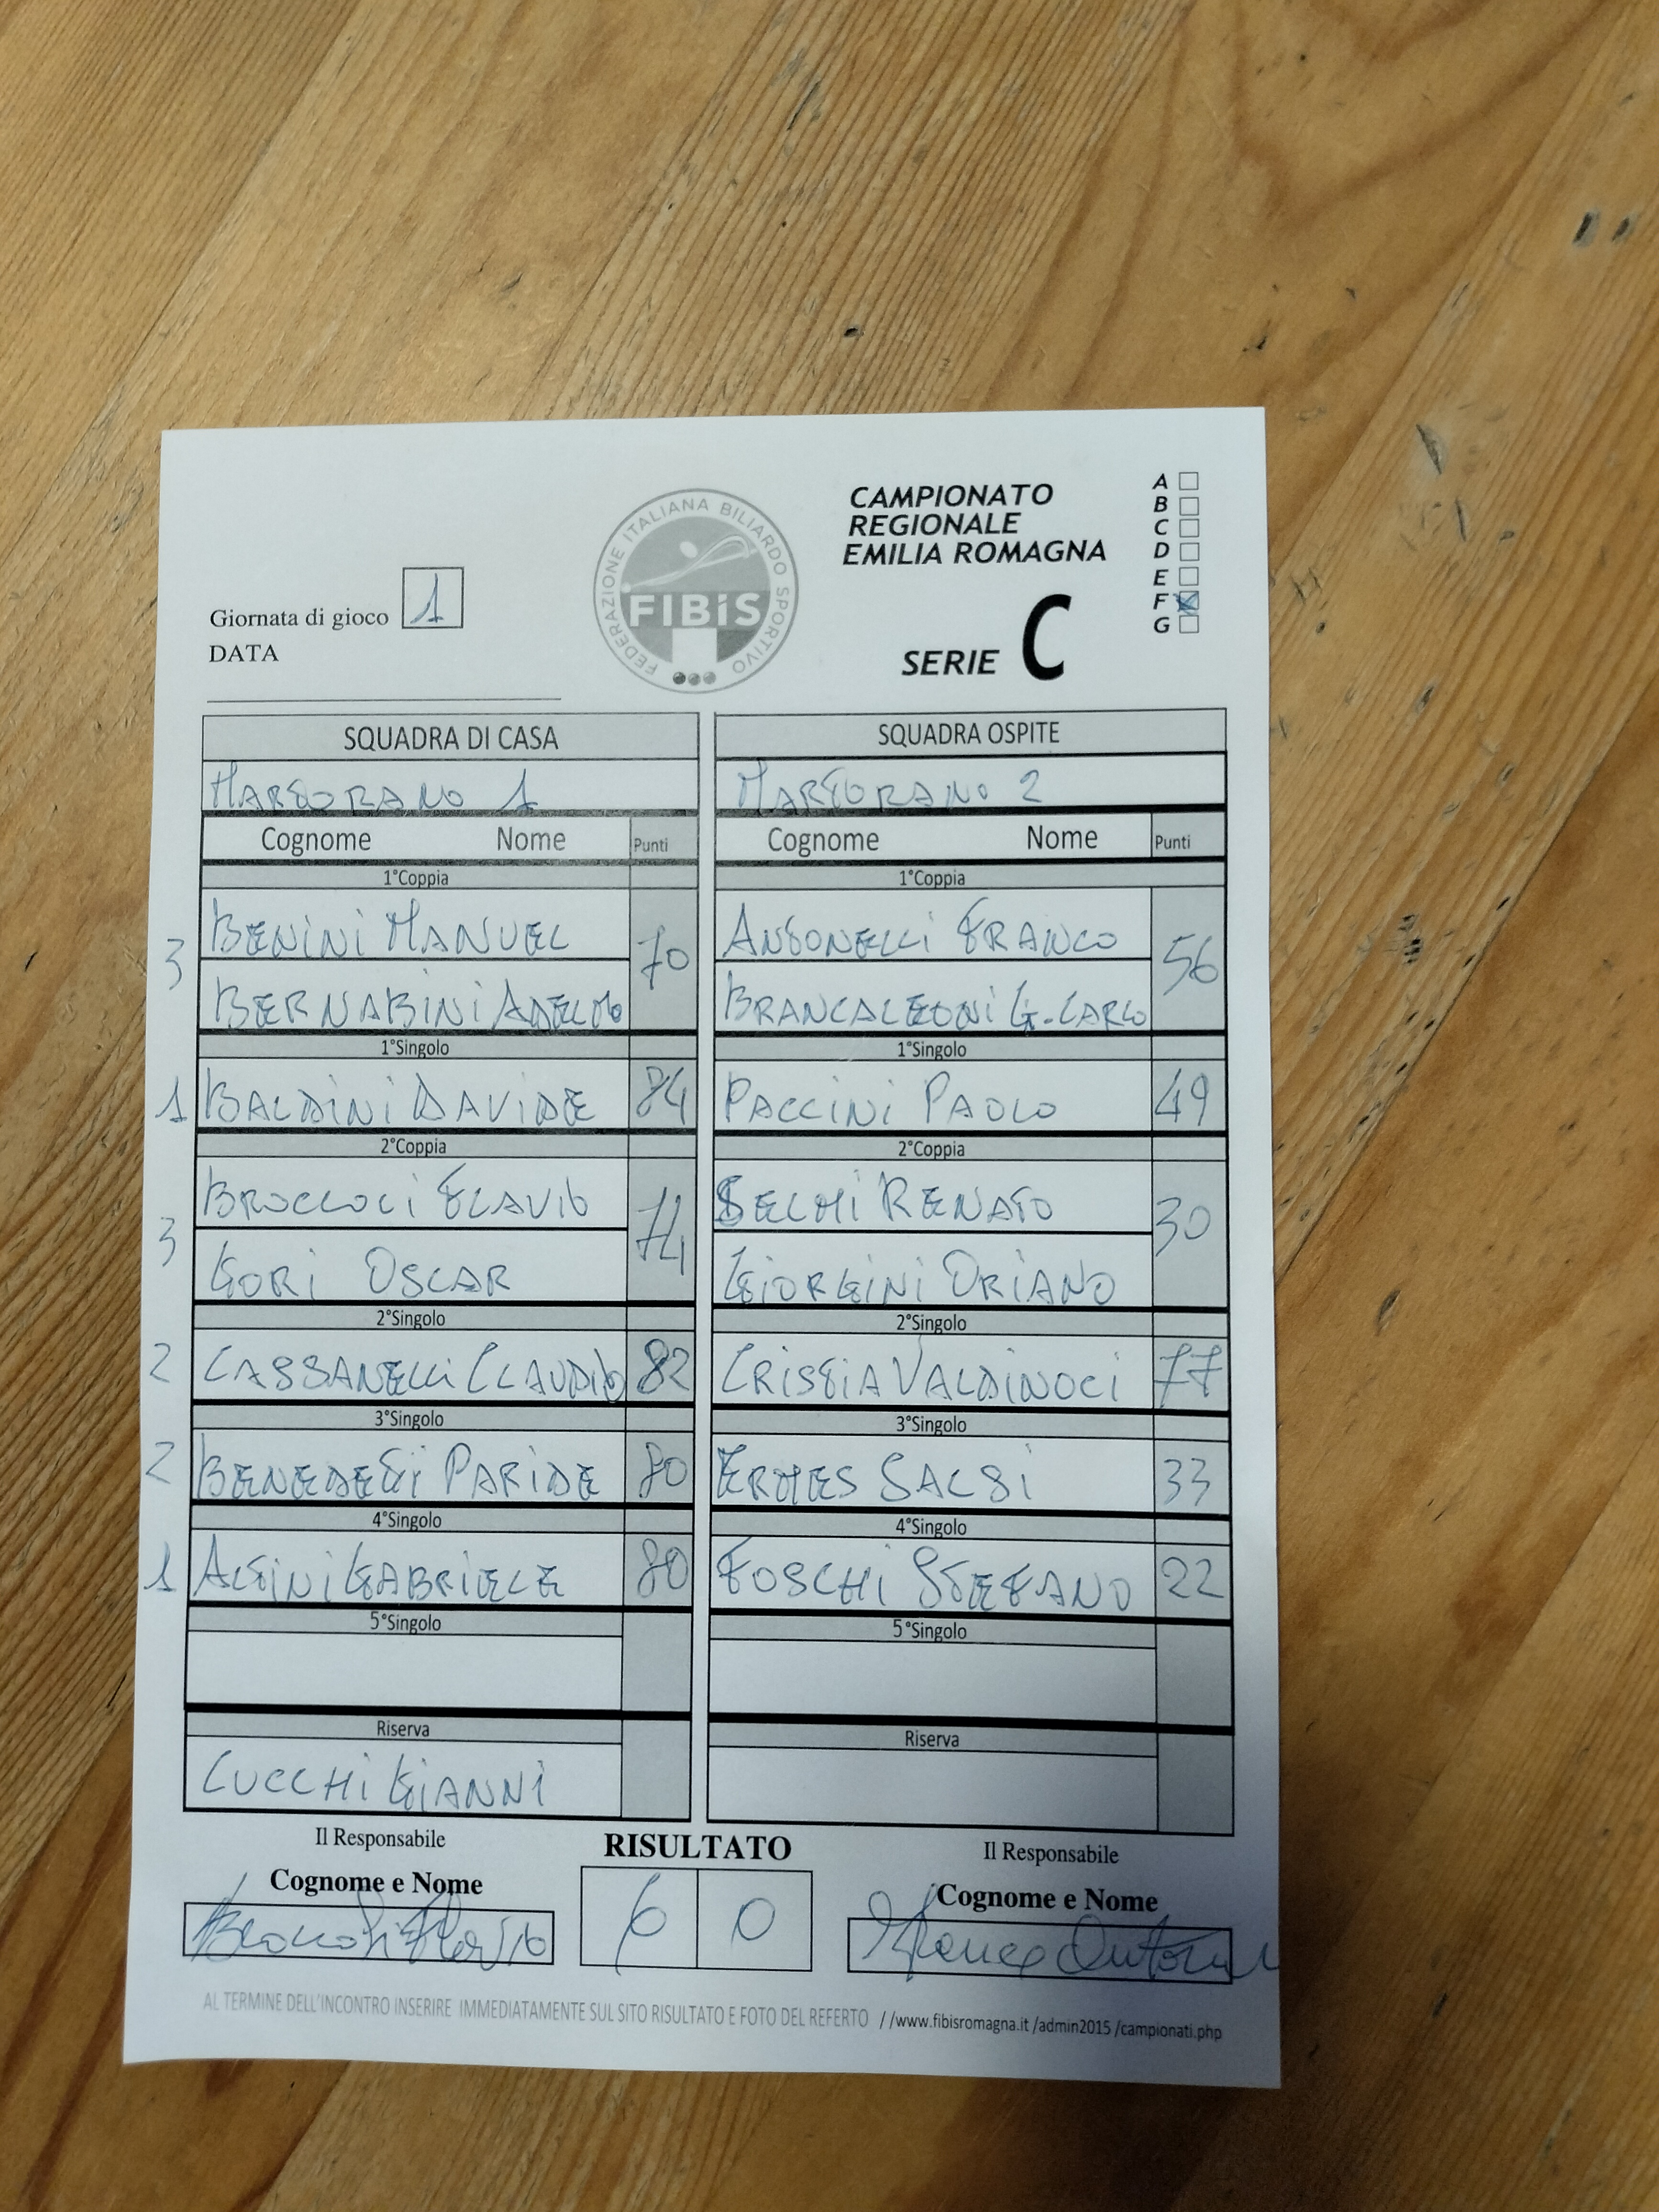 FEDERAZIONE ITALIANA BILIARDO SPORTIVO
FIBiS
CAMPIONATO
REGIONALE
EMILIA ROMAGNA
SERIE C
A
B
C
D
E
F
G
Giornata di gioco 1
DATA
SQUADRA DI CASA
MARTORANO 1
Cognome Nome Punti
1°Coppia
3
BENINI MANUEL
BERNABINI ADELMO
70
1°Singolo
1 BALDINI DAVIDE 84
2°Coppia
3
BROCCOLI FLAVIO
GORI OSCAR
74
2°Singolo
2 CASSANELLI CLAUDIO 82
3°Singolo
2 BENEDETTI PARIDE 80
4°Singolo
1 ALTINI GABRIELE 80
5°Singolo
Riserva
LUCCHI GIANNI
SQUADRA OSPITE
MARTORANO 2
Cognome Nome Punti
1°Coppia
ANTONELLI FRANCO
BRANCALEONI G.CARLO
56
1°Singolo
PACCINI PAOLO 49
2°Coppia
SELMI RENATO
GIORGINI ORIANO
30
2°Singolo
CRISTIA VALDINOCI 77
3°Singolo
ERMES SALSI 33
4°Singolo
FOSCHI STEFANO 22
5°Singolo
Riserva
Il Responsabile
Cognome e Nome
Broccoli Flavio
RISULTATO
6 0
Il Responsabile
Cognome e Nome
Franco
AL TERMINE DELL'INCONTRO INSERIRE IMMEDIATAMENTE SUL SITO RISULTATO E FOTO DEL REFERTO //www.fibisromagna.it /admin2015 /campionati.php